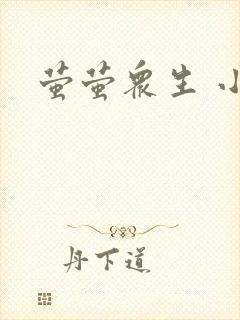 萤萤众生 小
丹下道